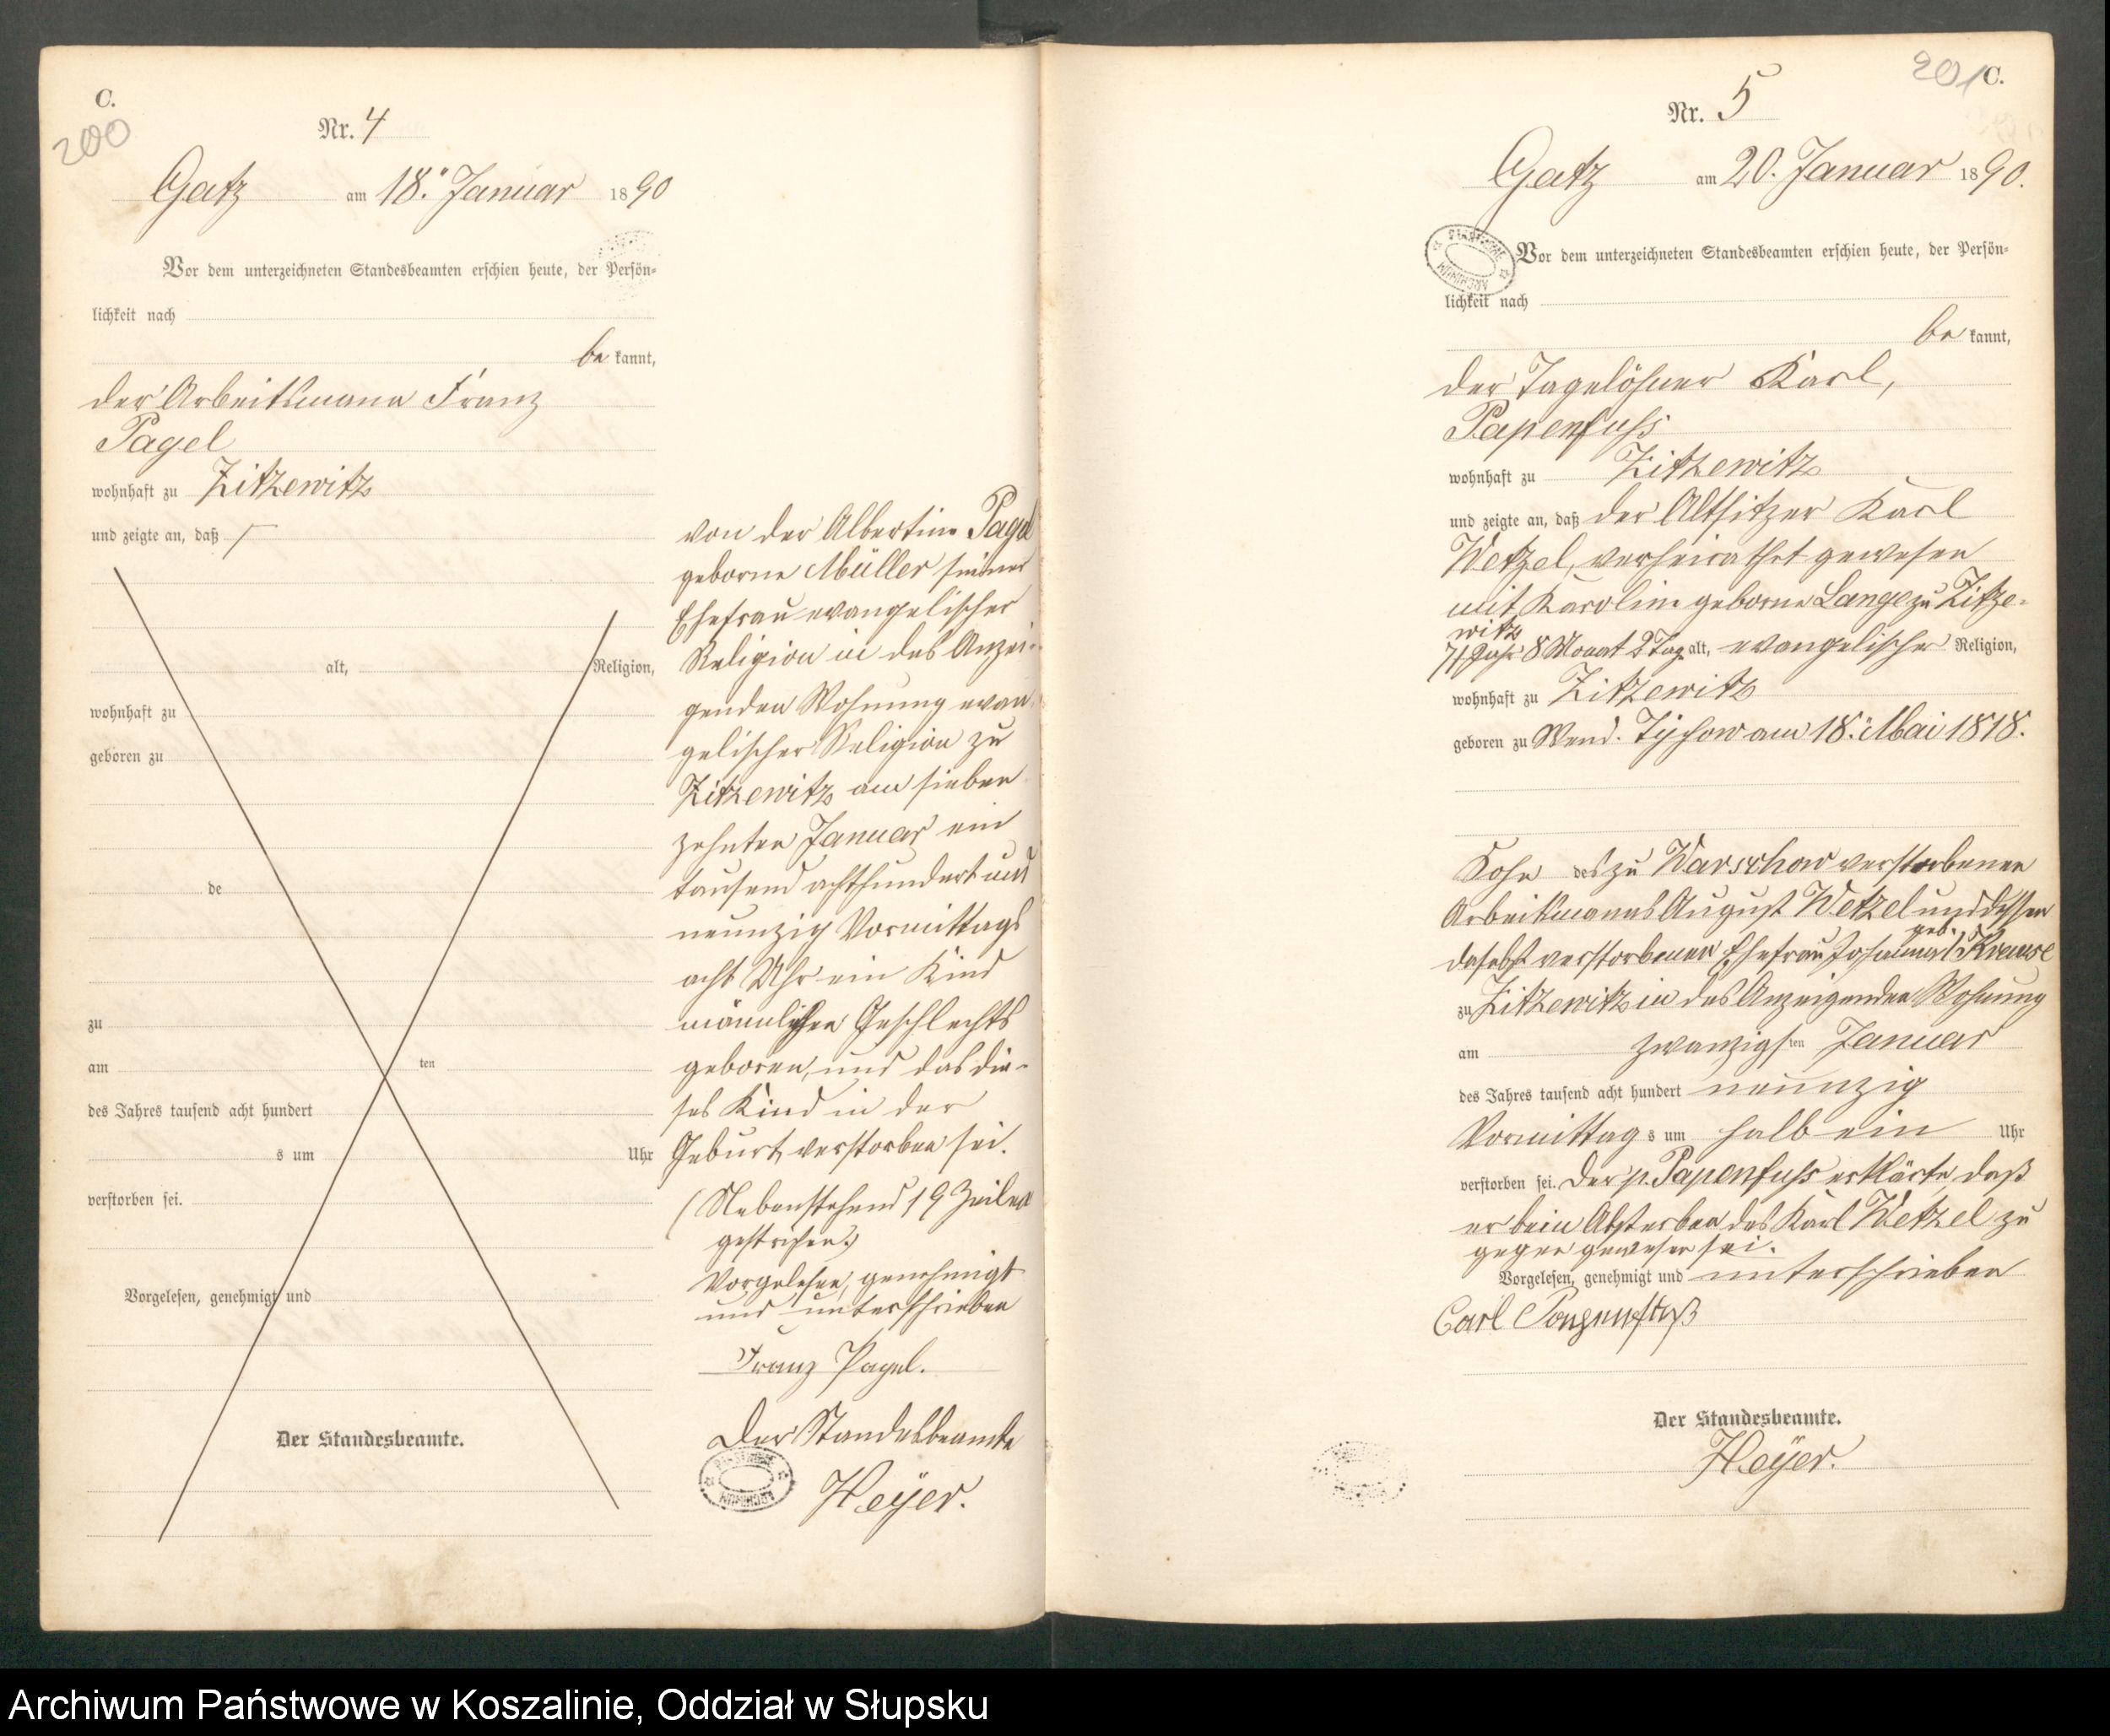 C.
200
Nr. 4
Gatz am 18. Januar 1890
Vor dem unterzeichneten Standesbeamten erschien heute, der Persön=
lichkeit nach
be kannt,
der Arbeitsmann Franz
Pagel
wohnhaft zu Zitzewitz
und zeigte an, daß
alt, Religion,
wohnhaft zu
geboren zu
de
zu
am ten
des Jahres tausend acht hundert
s um Uhr
verstorben sei.
Vorgelesen, genehmigt und
Der Standesbeamte.
von der Albertine Pagel
geborne Müller seiner
Ehefrau evangelischer
Religion in des Anzei-
genden Wohnung evan
gelischer Religion zu
Zitzewitz am sieben
zehnten Januar ein
tausend achthundert und
neunzig Vormittags
acht Uhr ein Kind
männlichen Geschlechts
geboren, und das die-
ses Kind in der
Geburt verstorben sei.
(Nebenstehend 19 Zeilen
gestrichen.)
Vorgelesen, genehmigt
und unterschrieben
Franz Pagel.
Der Standesbeamte
Heÿer.
201 C.
Nr. 5
Gatz am 20. Januar 1890.
ARCHIWUM
Vor dem unterzeichneten Standesbeamten erschien heute, der Persön=
lichkeit nach
be kannt,
der Tagelöhner Karl,
Papenfuss
wohnhaft zu Zitzewitz
und zeigte an, daß der Altsitzer Karl
Wetzel, verheirathet gewesen
mit Karoline geborne Lange zu Zitze-
witz
71 Jahr 8 Monat 2 Tag alt, evangelischer Religion,
wohnhaft zu Zitzewitz
geboren zu Wend. Tÿchow am 18. Mai 1818.
Sohn des zu Warschow verstorbenen
Arbeitsmannes August Wetzel und dessen
daselbst verstorbenen Ehefrau Johanna geb. Krause
zu Zitzewitz in des Anzeigenden Wohnung
am zwanzigsten Januar
des Jahres tausend acht hundert neunzig
Vormittag s um halb ein Uhr
verstorben sei. Der p. Papenfuss erklärte, daß
er beim Absterben des Karl Wetzel zu
gegen gewesen sei.
Vorgelesen, genehmigt und unterschrieben
Carl Papenfuß
Der Standesbeamte.
Heÿer.
Archiwum Państwowe w Koszalinie, Oddział w Słupsku